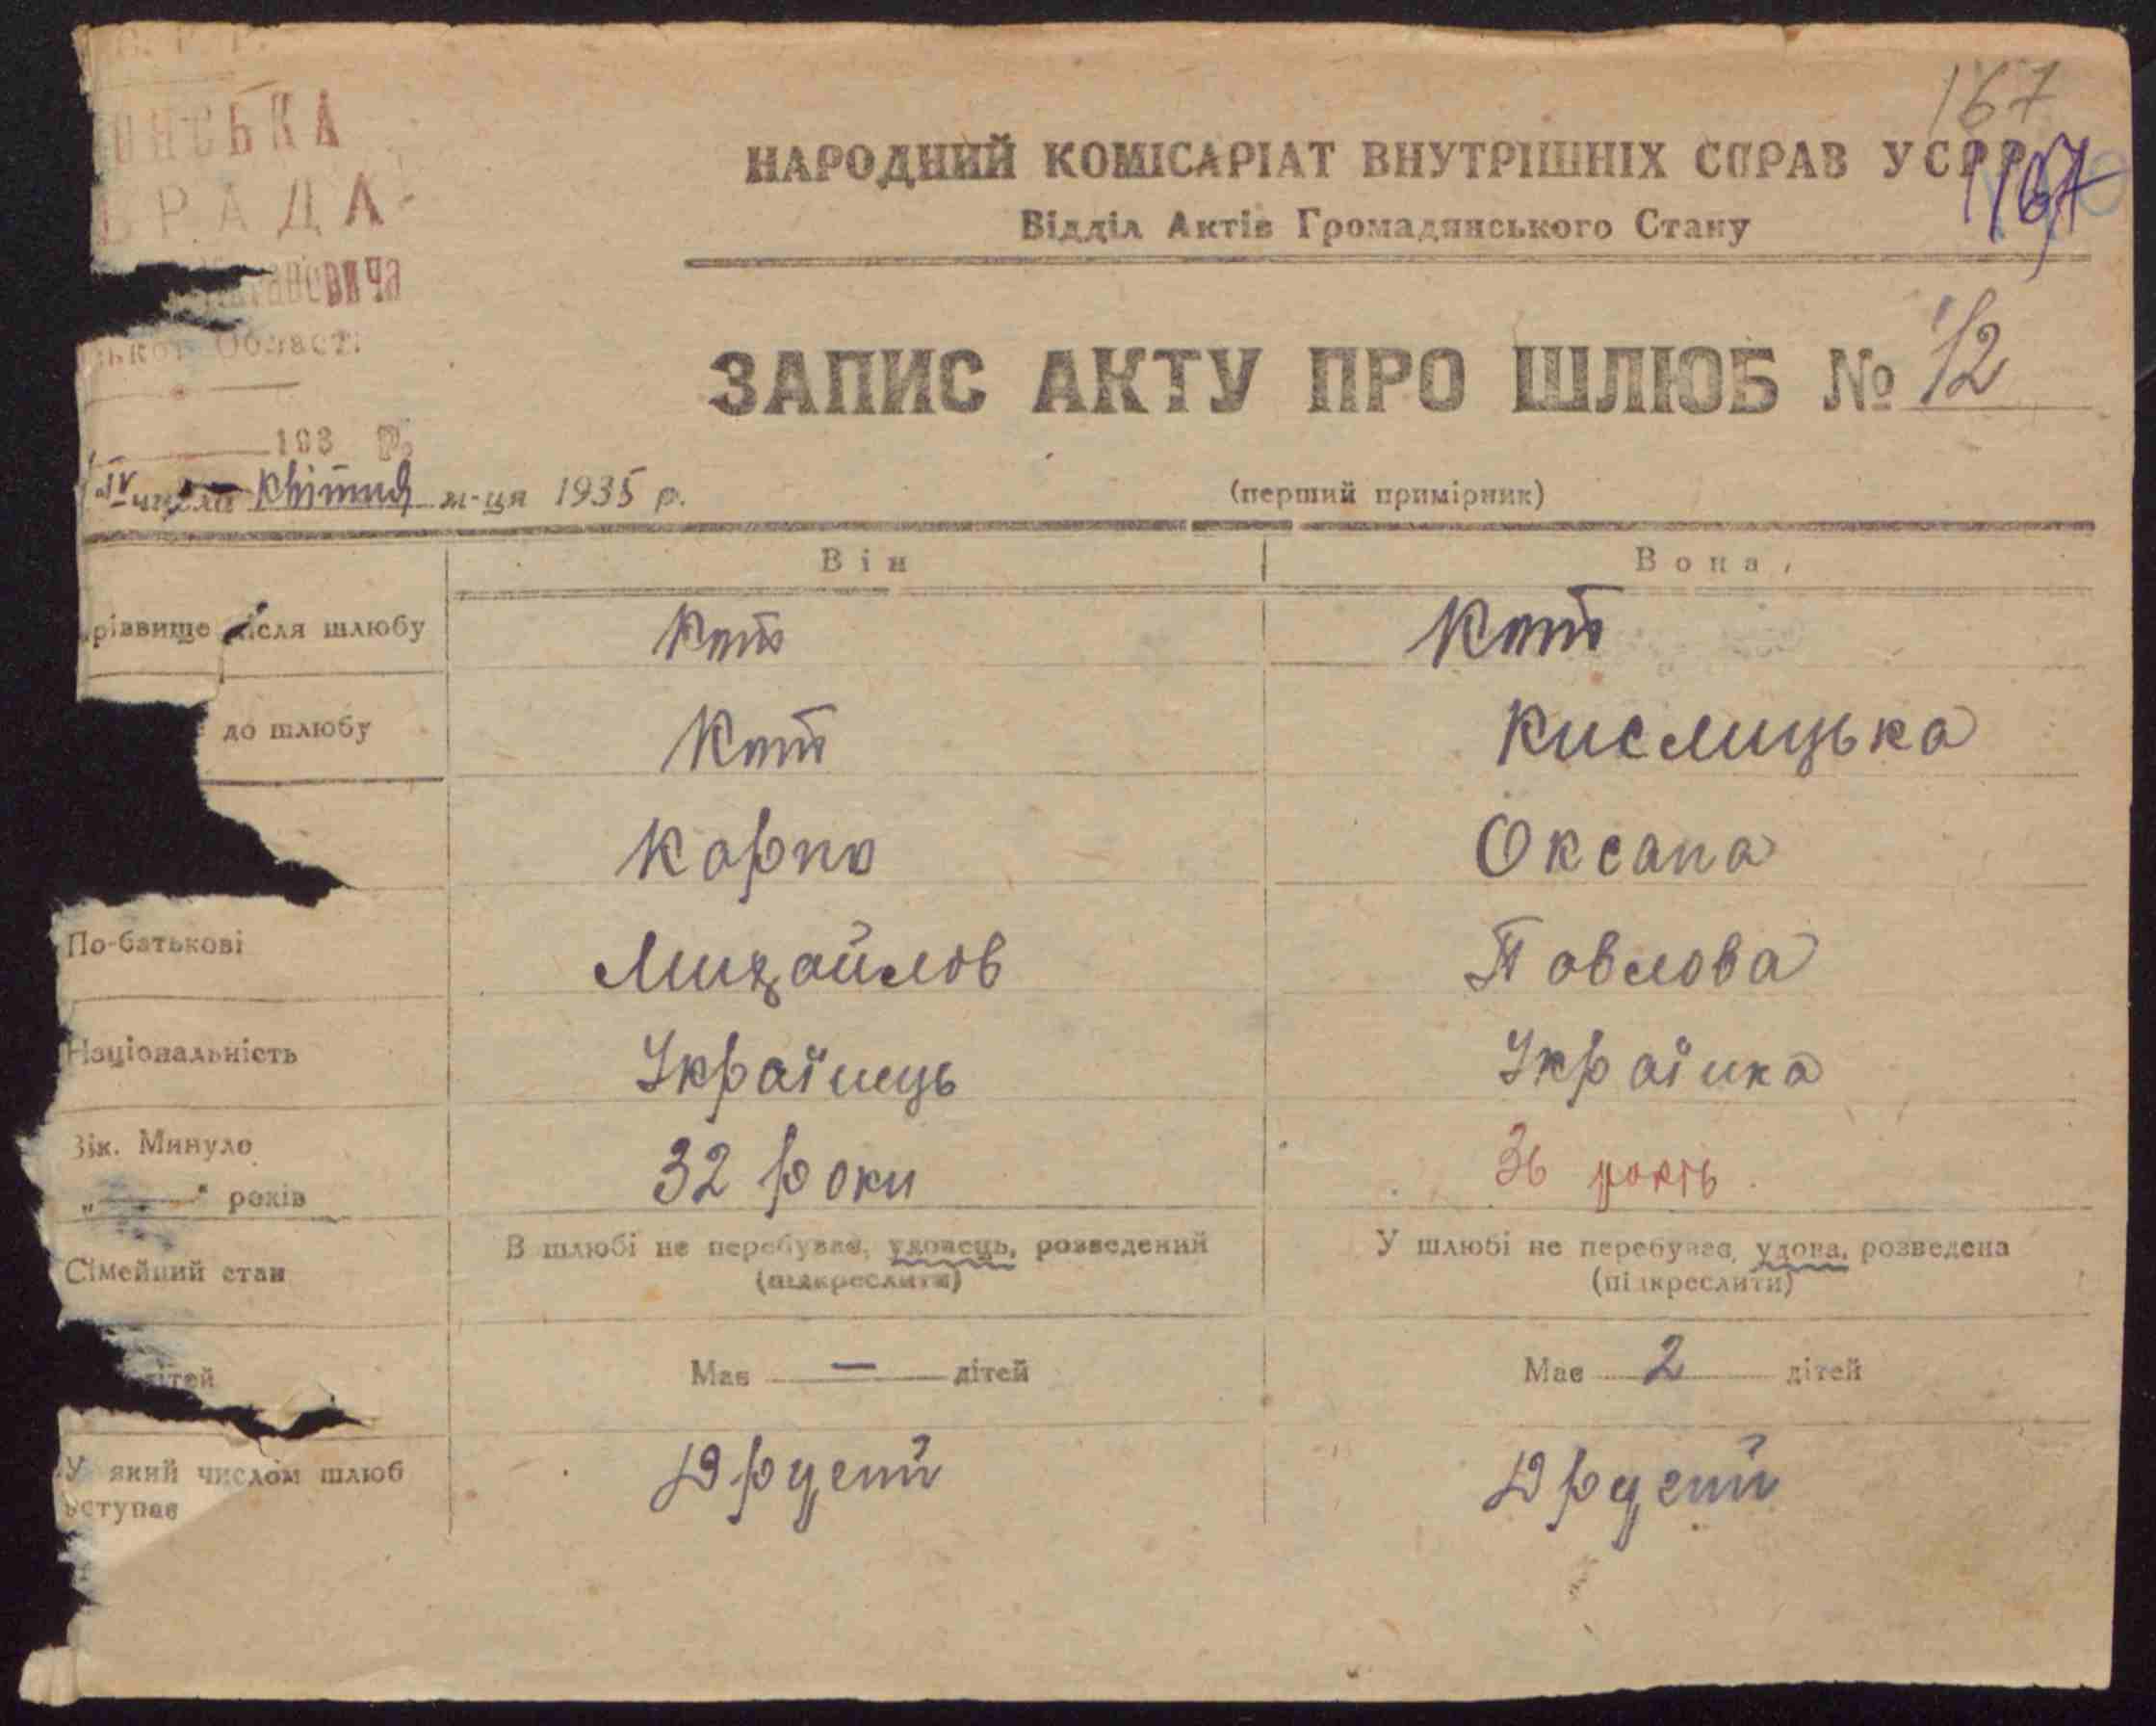 167
ОНСЬКА
РАДА
НАРОДНИЙ КОМІСАРІАТ ВНУТРІШНІХ СПРАВ УСРР
167
Відділ Актів Громадянського Стану
Области
ЗАПИС АКТУ ПРО ШЛЮБ № 12
193 Р.
числа квітня м-ця 1935 р.
(перший примірник)
Він Вона
різвище після шлюбу Кот Кот
до шлюбу Кот Кислицька
Карпо Оксана
По-батькові Михайлов Павлова
Національність Українець Українка
Вік. Минуло
„ " років 32 роки 36 років
Сімейний стан В шлюбі не перебував, удовець, розведений У шлюбі не перебуває, удова, розведена
(підкреслити) (підкреслити)
дітей Має — дітей Має 2 дітей
У який числом шлюб Другий Другий
вступає